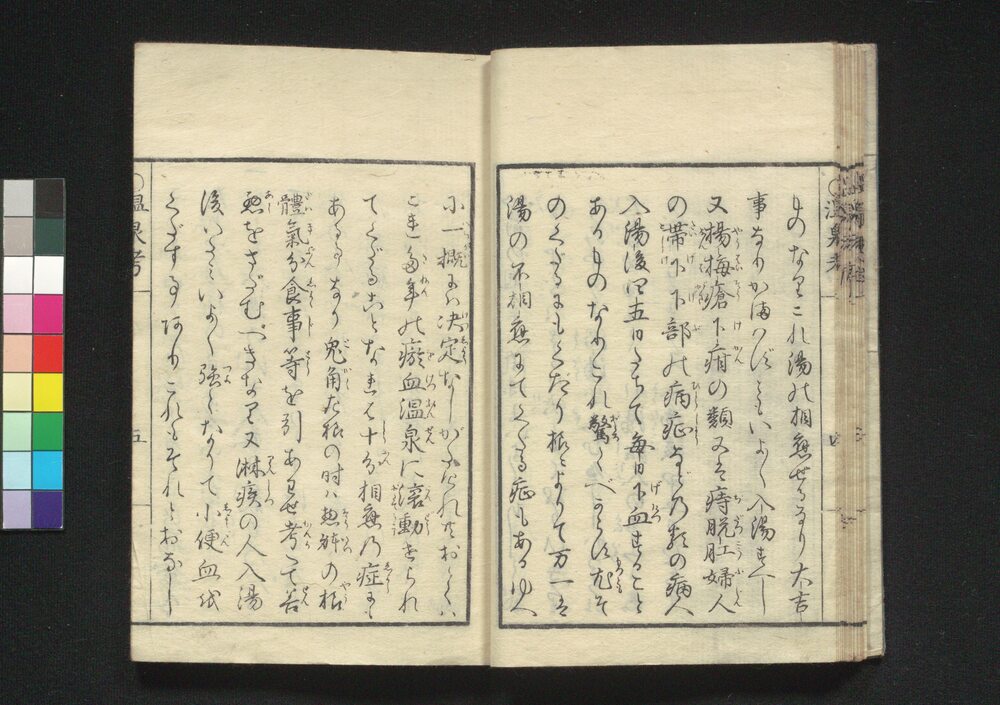 ものなりこれ湯の相應せるなり大吉
事なりかまはずともいよ〱入湯すべし
又楊梅瘡下疳の類又は痔脱肛婦人
の帯下下部の病症などの類の病人
入湯後四五日たちて毎日下血すること
あるものなりこれ驚くべからず尤そ
のくだるにもくだり様によりて万一は
湯の不相應にてくだる症もあるゆへ
に一概には決定なしがたけれ共おゝくは
こは多年の瘀血温泉に滾動せられ
てくだることなれば十分相應の症にて
あるなり兎角右様の時は惣躰の様
體氣分食事等を引あはせ考へて善
悪をさだむべきなり又淋疾の人入湯
後いたみいよ〱強くなりて小便血膿
くだす事ありこれもそれとおなし
○温泉考
五
四